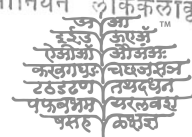 TM
अ आ
इईउ ऊएॲ
ऐओऑ औअंअः
कखगघङ चछजझञ
टठडढण तथदधन
पफबभम यरलवश
षसह ळक्षज्ञ